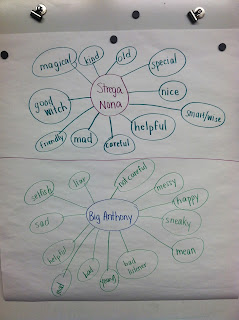 magical
kind
old
special
Strega
Nona
nice
good
witch
smart/wise
helpful
friendly
mad
careful
selfish
liar
not careful
messy
happy
sad
Big Anthony
sneaky
helpful
mean
mad
bad
bad
listener